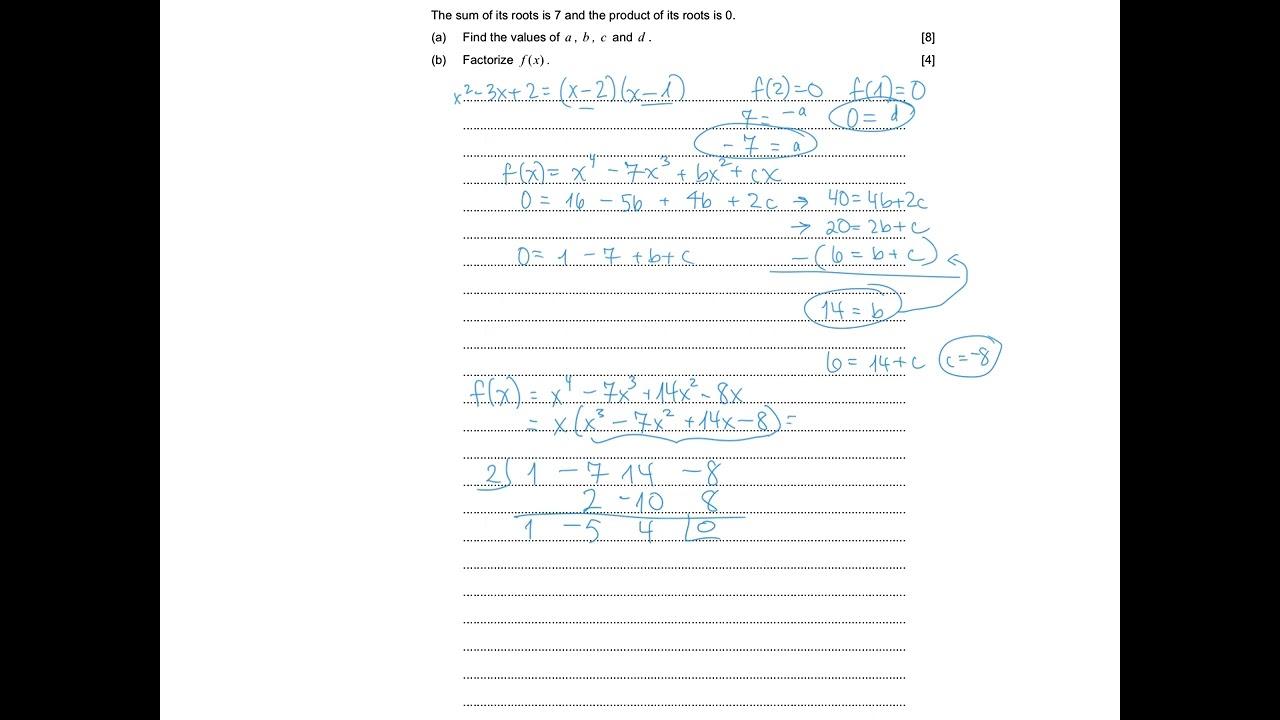 The sum of its roots is 7 and the product of its roots is 0.
(a) Find the values of a, b, c and d. [8]
(b) Factorize f(x). [4]
x² - 3x + 2 = (x - 2)(x - 1) f(2) = 0 f(1) = 0
7 = -a 0 = d
-7 = a
f(x) = x⁴ - 7x³ + bx² + cx
0 = 16 - 56 + 4b + 2c → 40 = 4b + 2c
→ 20 = 2b + c
0 = 1 - 7 + b + c -(6 = b + c)
14 = b
6 = 14 + c c = -8
f(x) = x⁴ - 7x³ + 14x² - 8x
= x(x³ - 7x² + 14x - 8) =
2 1 -7 14 -8
2 -10 8
1 -5 4 0